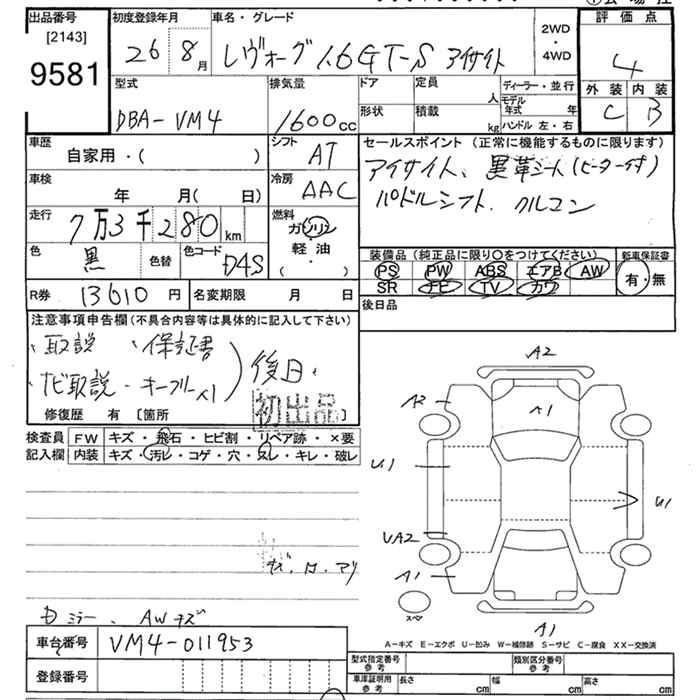 出品番号
[2143]
9581
初度登録年月
26 8月
車名・グレード
レヴォーグ 1.6GT-S アイサイト
2WD
・
4WD
評価点
4
外装 内装
C B
型式
DBA-VM4
排気量
1600cc
ドア
形状
定員
人
積載
kg
ディーラー・並行
モデル年式 年
ハンドル 左・右
車歴
自家用・( )
シフト
AT
車検
年 月( 日)
冷房
AAC
走行
7万3千280km
燃料
ガソリン
軽油
( ・ )
色
黒
色替
色コード
D4S
R券 13610円
名変期限 月 日
セールスポイント(正常に機能するものに限ります)
アイサイト、黒革シート(ヒーター付)
パドルシフト、クルコン
装備品(純正品に限り〇をつけてください)
PS PW ABS エアB AW
SR TV カワ
新車保証書
有・無
後日品
注意事項申告欄(不具合内容等は具体的に記入して下さい)
・取説 ・保証書
ナビ取説・キーフリー×1
後日
初出品
修復歴 有 [箇所 ]
検査員記入欄
FW キズ・飛石・ヒビ割・リペア跡・×要
内装 キズ・汚レ・コゲ・穴・スレ・キレ・破レ
A2
A2
A1
U1
U1
UA2
A1
スペア
A1
ミラー、AWキズ
A-キズ E-エクボ U-凹み W-補修跡 S-サビ C-腐食 XX-交換済
車台番号 VM4-011953
登録番号
型式指定番号 参考
類別区分番号 参考
車庫証明用 参考
長さ cm 幅 cm 高さ cm